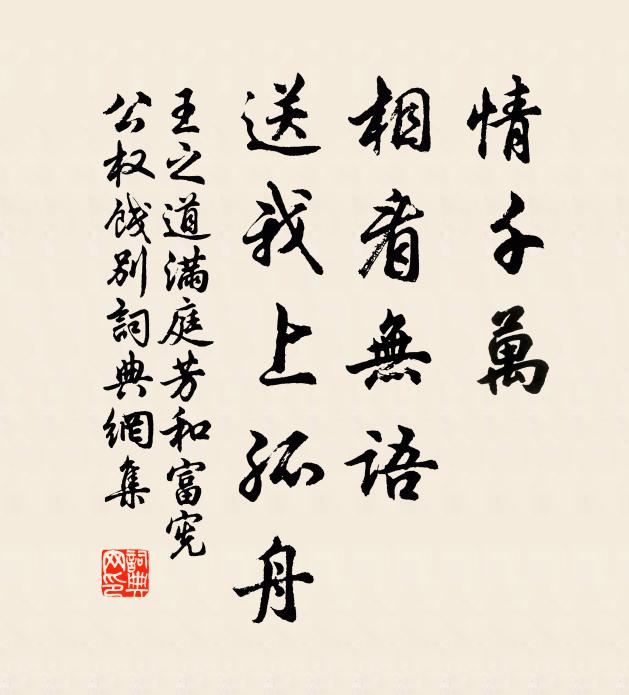 情千萬
相看無語
送我上孤舟
王之道滿庭芳和富宪
公权餞别詞典網集
詞典网印